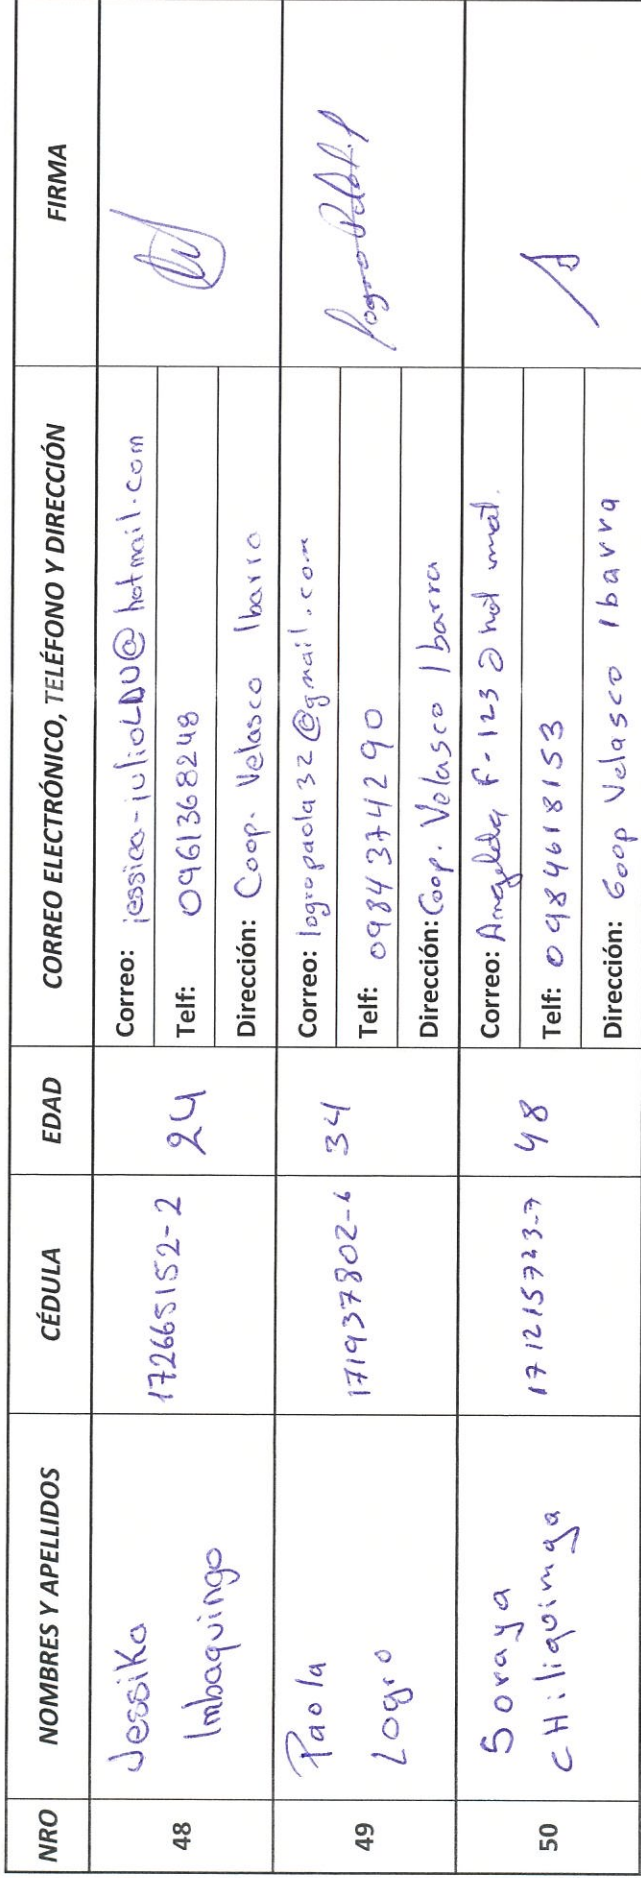 NRO NOMBRES Y APELLIDOS CÉDULA EDAD CORREO ELECTRÓNICO, TELÉFONO Y DIRECCIÓN FIRMA
48
Jessika
Imbaquingo
172665152-2
24
Correo: jessica-julioLDU@hotmail.com
Telf: 0961368248
Dirección: Coop. Velasco Ibarra
49
Paola
Logro
171937802-6
34
Correo: logropaola32@gmail.com
Telf: 0984374290
Dirección: Coop. Velasco Ibarra
50
Soraya
CHiliquinga
171215723-7
48
Correo:
Telf: 0984618153
Dirección: Coop Velasco Ibarra